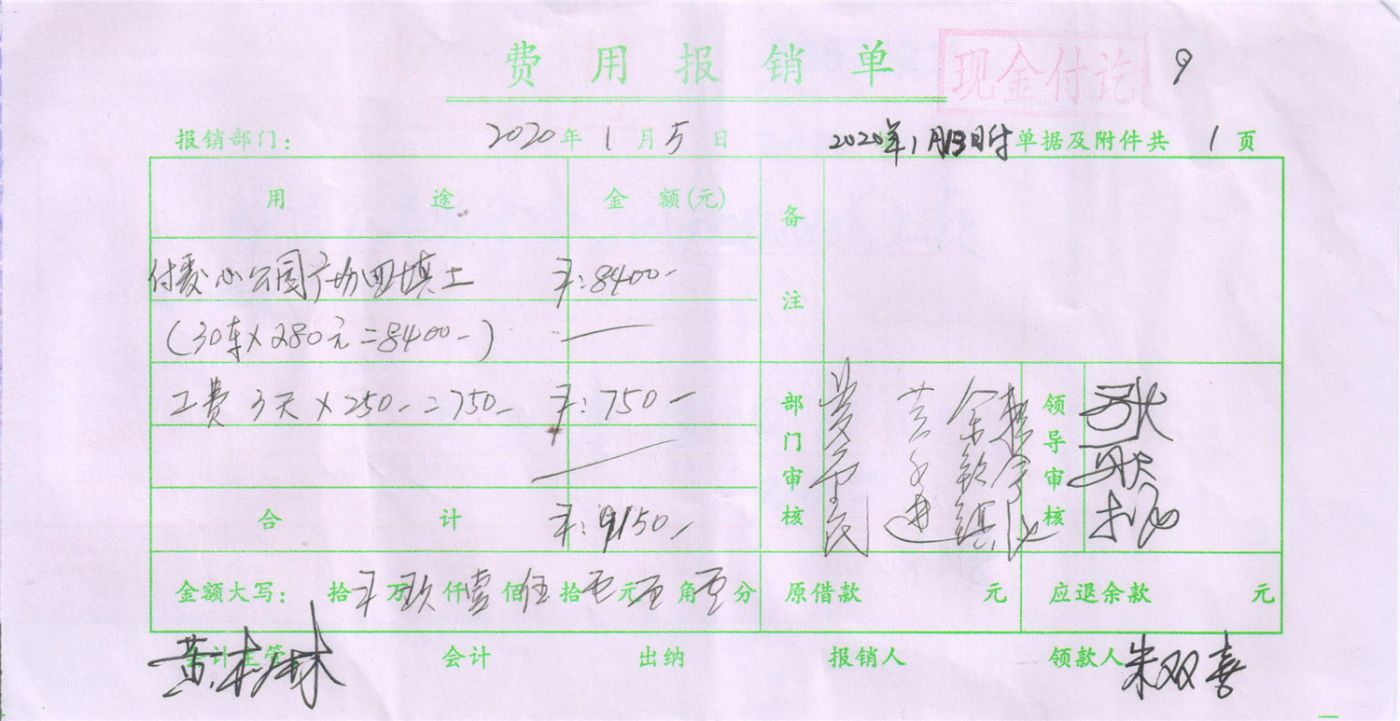 费用报销单
现金付讫
9
报销部门： 2020年1月5日 2020年1月13日付 单据及附件共 1 页
用途 金额(元) 备注
付爱心公园广场四填土 ¥:8400-
(30车×280元=8400-)
工费 3天×250-=750- ¥:750-
部门审核 领导审核
合计 ¥:9150-
金额大写： 拾 万玖仟壹佰伍拾零元零角零分 原借款 元 应退余款 元
会计主管 会计 出纳 报销人 领款人 朱双喜